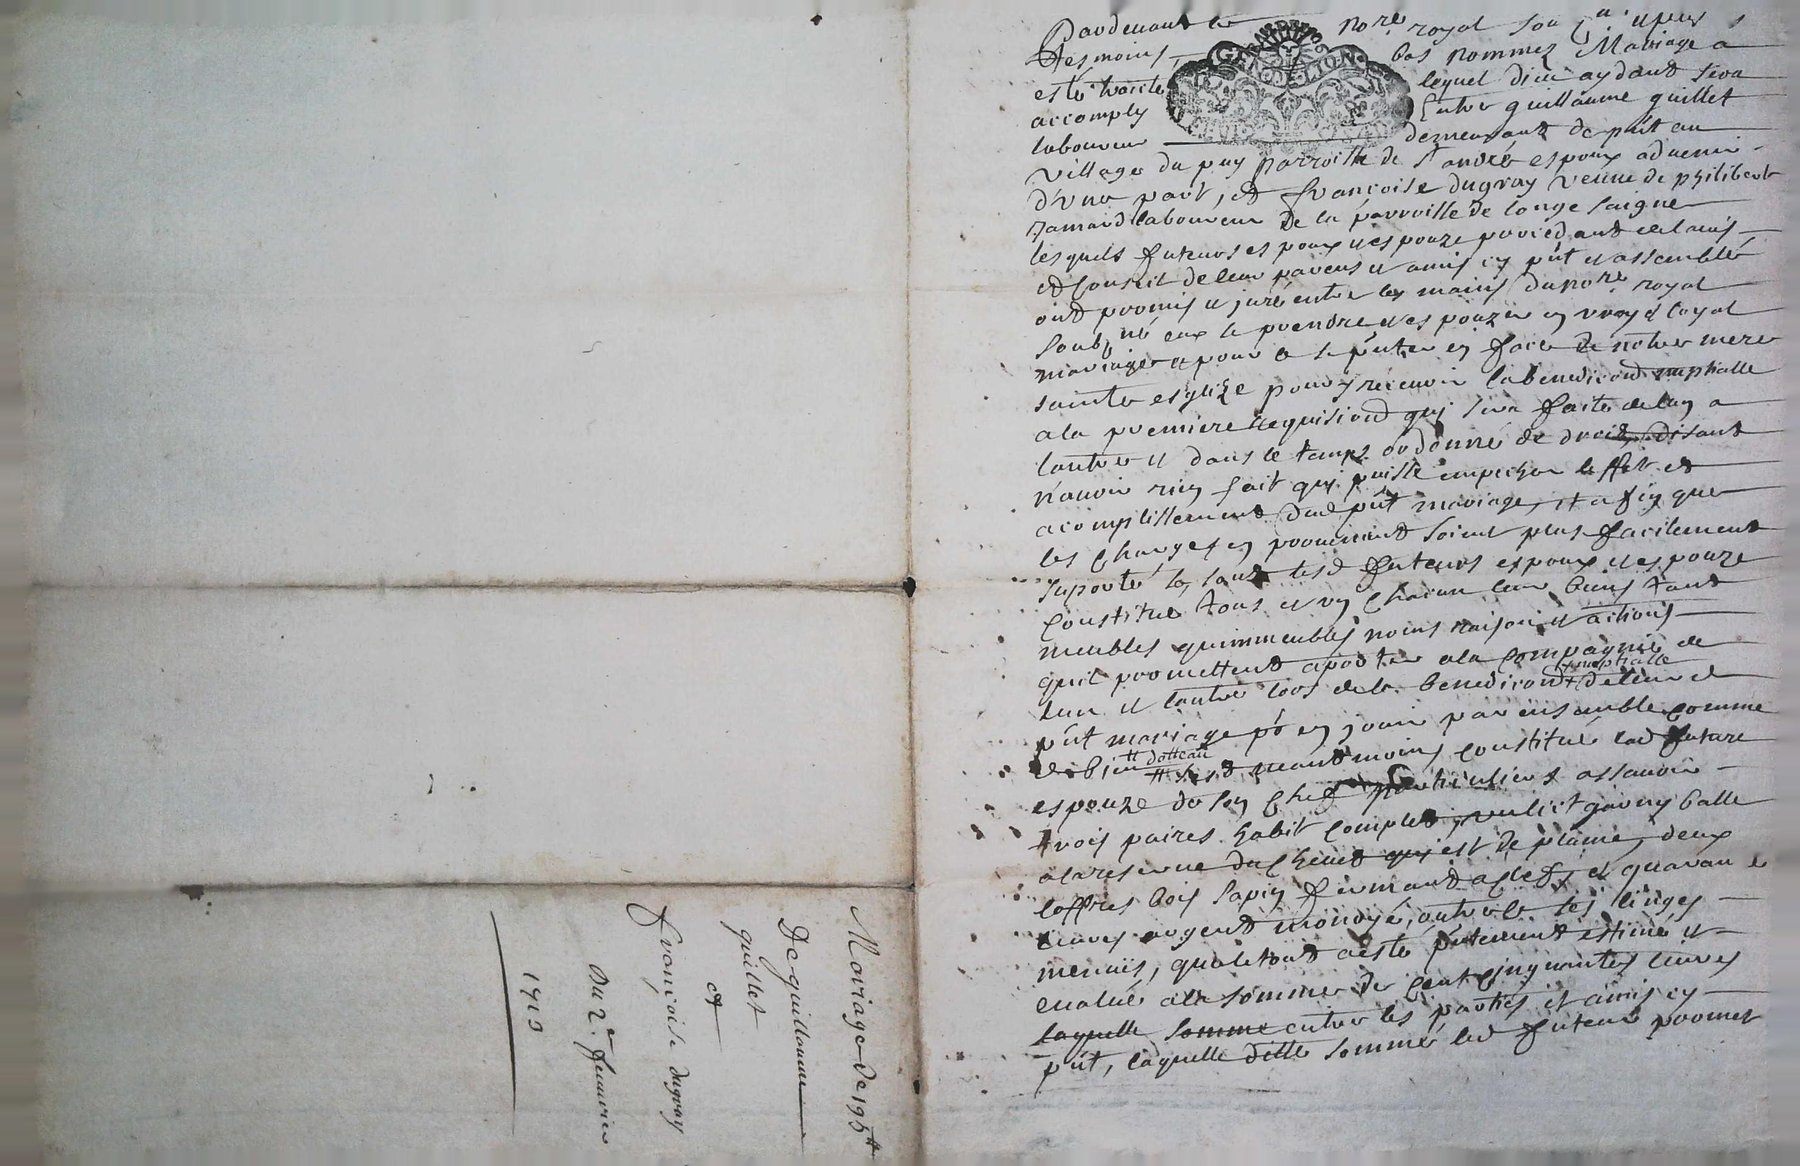 Pardevant le nore royal sou
tesmoins bas nommez Mariage a
GEN. DE LION
esté traicté lequel dieu aydant sera
accomply Entre guillaume guillet
laboureur demeurant de pnt au
village du puy parroisse de St andré espoux aduenir
d'vne part, et françoise dugray veuue de philibert
ramard laboureur de la parroisse de longe saigne
lesquels futeurs espoux et espouze
et conseil de leur parens et amis cy pnt et assemblés
ont promis et juré entre les mains du nore royal
soubné eux se prendre et espouzer en vray et loyal
mariage et pour ce se pnter en face de notre mere
sainte esglize pour y receuoir la benediction nuptialle
a la premiere requision quj sera faite de lun a
lautre et dans le temps ordonné de droit, disant
n'auoir rien fait quj puisse empecher leffet et
acomplissement dud pnt mariage, et afin que
les charges en prouenant soient plus facilement
suporté lesd futeurs espoux et espouze
constitue tous et vn chacun leur biens tant
meubles quimmeubles noms raisons et actions
quil promettent aporter a la compagnie de
lun et lautre lors de la benediction + de leur d
nuptialle
pnt mariage pr en jouir par ensemble comme
de bien dottau
sest neantmoins constitué lad future
espouze de son chef particulier assauoir
trois paires habit complet, vn lict garny balle
a la reserue du cheuet quj est de plume, deux
coffres bois sapin fermant a clef, et quarante
liures argent monoyé, outre ce ses linges
menuis, que le tout a esté pntement estimé et
eualué a la somme de cent cinquantes liures
laquelle somme entre les parties et amis cy
pnt, laquelle ditte somme led futeur promet
Mariage de 195tt
De guillaume
guillet
et
françoise dugray
du 2e feburier
1713